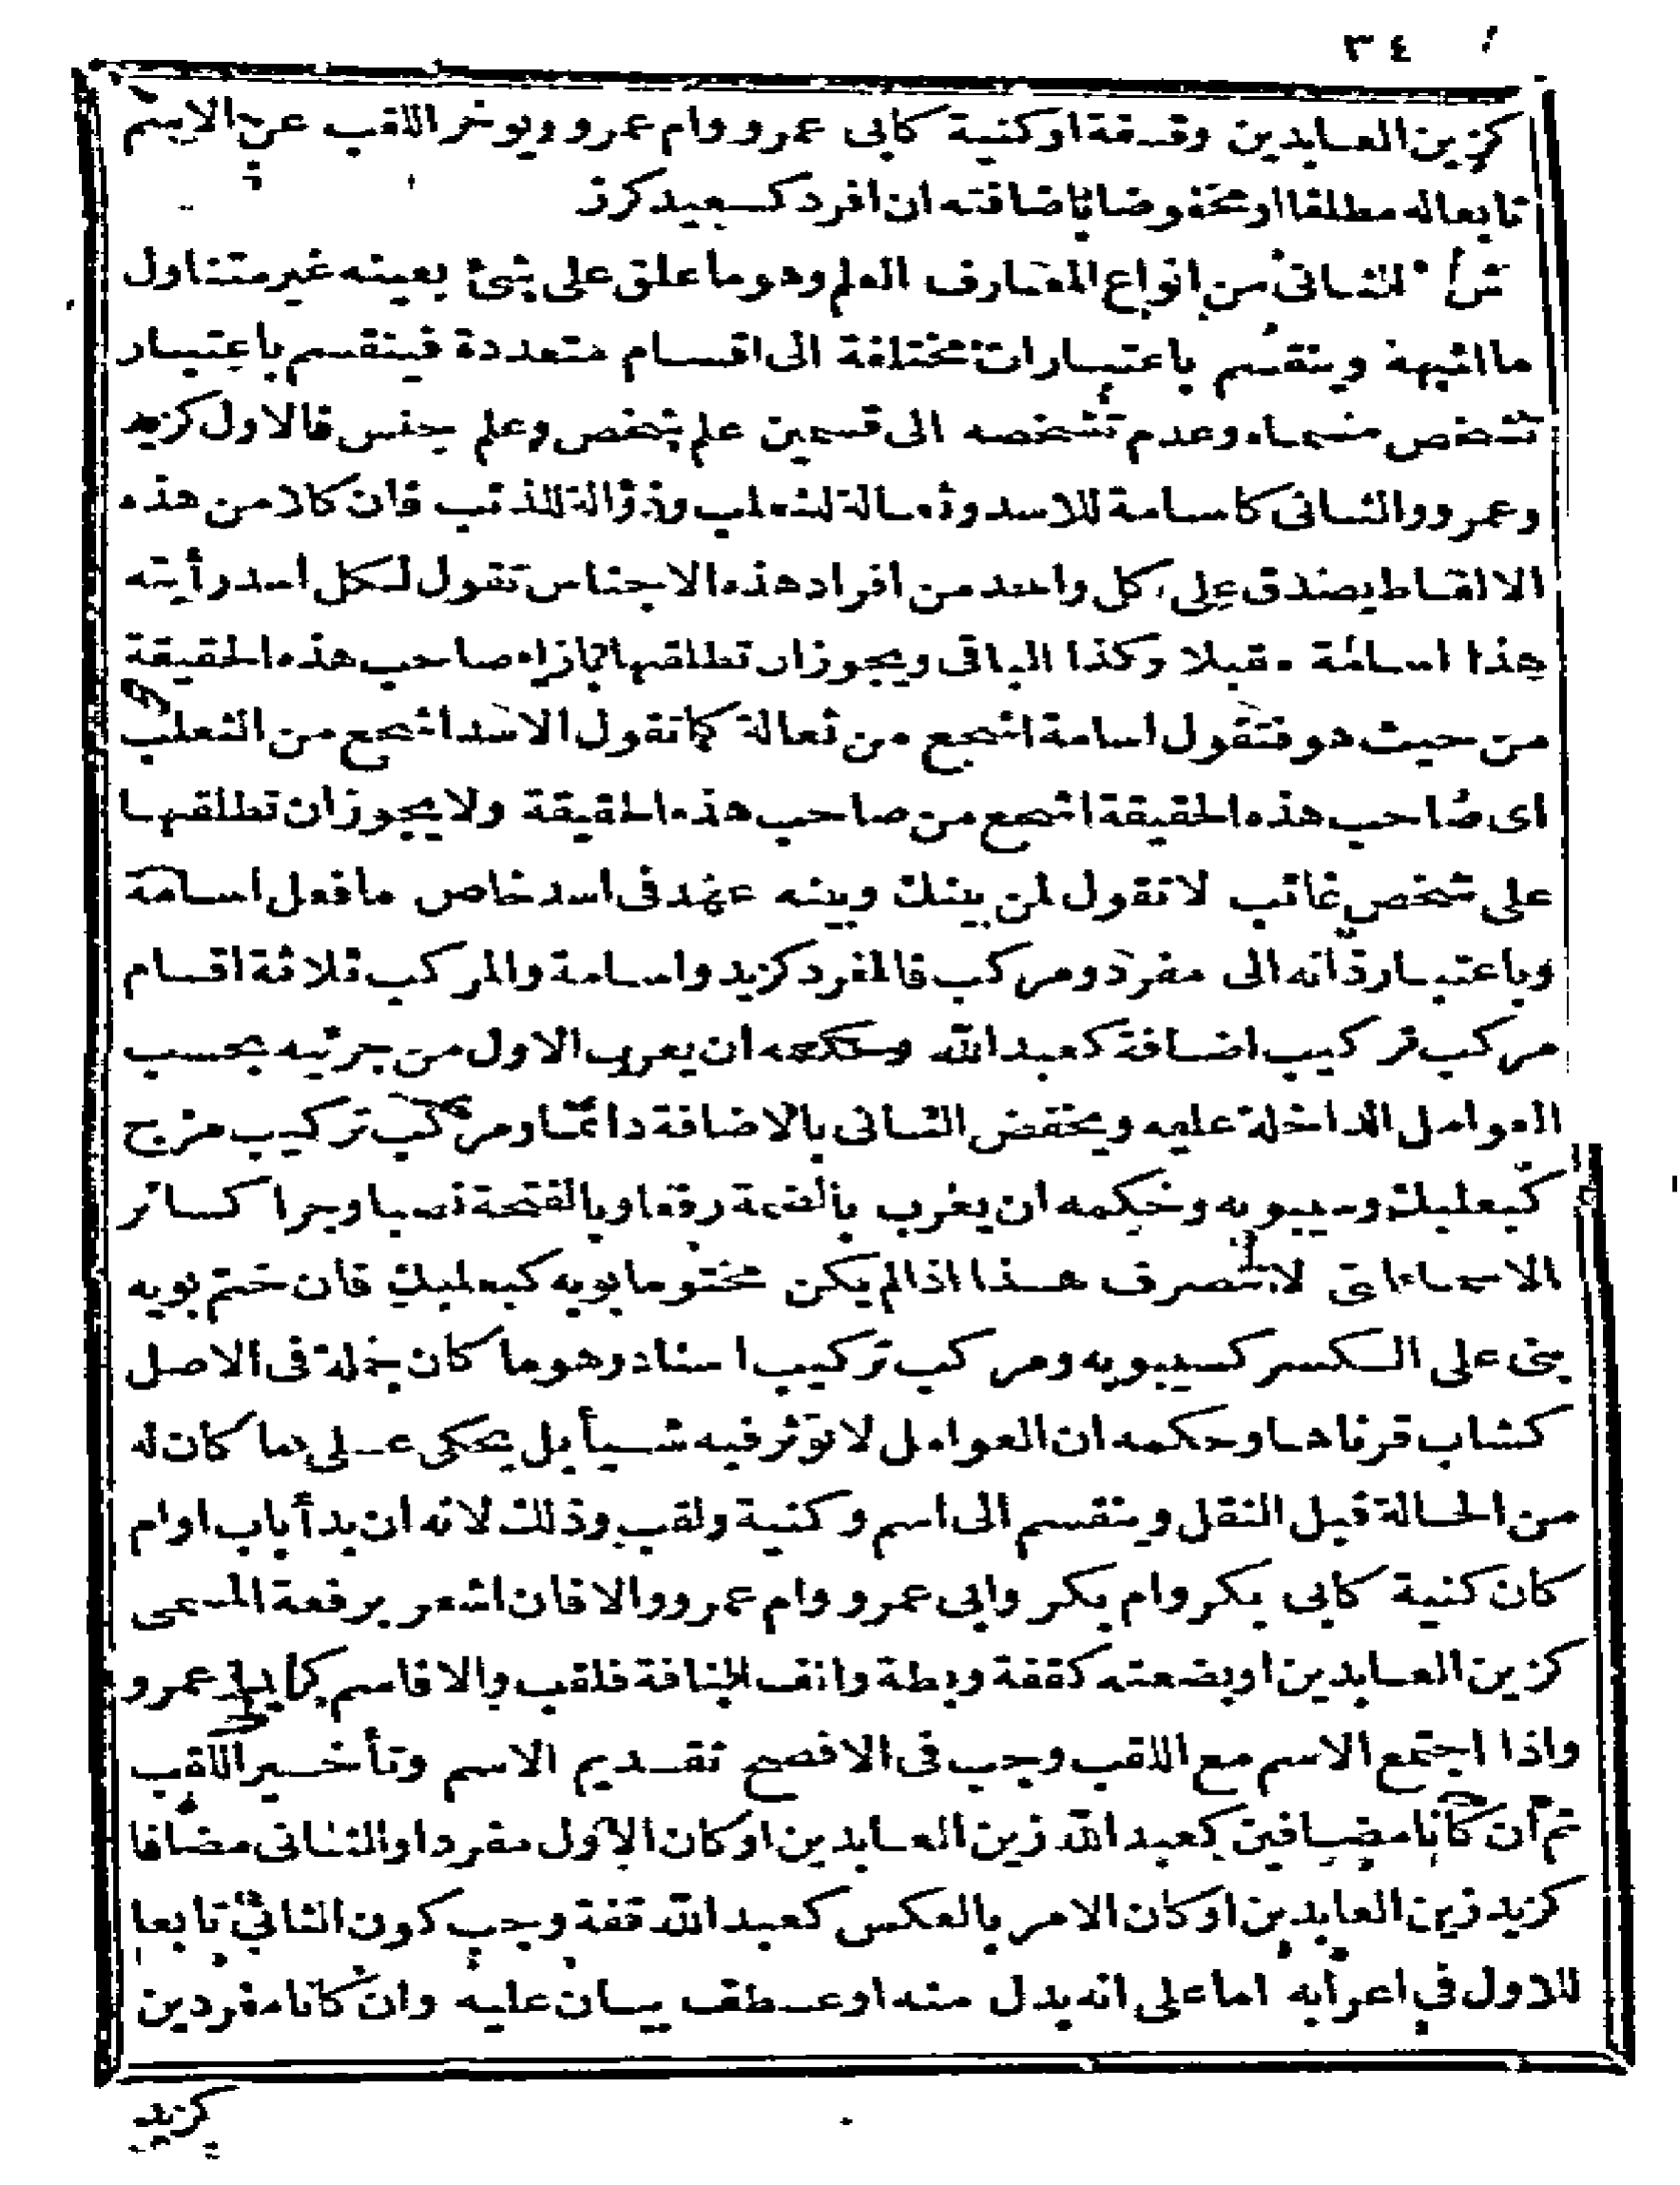 ٣٤
كزين العابدين وقفة او كنية كابى عمرو وام عمرو ويوخر اللقب عن الاسم
تابعا له مطلقا او مخفوضا باضافته ان افرد كسعيد كرز
ش الثانى من انواع المعارف العلم وهو ما علق على شئ بعينه غير متناول
ما اشبهه وينقسم باعتبارات مختلفة الى اقسام متعددة فينقسم باعتبار
تشخص مسماه وعدم تشخصه الى قسمين علم شخص وعلم جنس فالاول كزيد
وعمرو والثانى كاسامة للاسد وثعالة للثعلب وذؤالة للذئب فان كلا من هذه
الالفاظ يصدق على كل واحد من افراد هذه الاجناس تقول لكل اسد رأيته
هذا اسامة مقبلا وكذا الباقى ويجوز ان تطلقها بازاء صاحب هذه الحقيقة
من حيث هو فتقول اسامة اشجع من ثعالة كما تقول الاسد اشجع من الثعلب
اى صاحب هذه الحقيقة اشجع من صاحب هذه الحقيقة ولا يجوز ان تطلقها
على شخص غائب لا تقول لمن بينك وبينه عهد فى اسد خاص ما فعل اسامة
وباعتبار ذاته الى مفرد ومركب فالمفرد كزيد واسامة والمركب ثلاثة اقسام
مركب تركيب اضافة كعبد الله وحكمه ان يعرب الاول من جزئيه بحسب
العوامل الداخلة عليه ويخفض الثانى بالاضافة دائما ومركب تركيب مزج
كبعلبك وسيبويه وحكمه ان يعرب بالضمة رفعا وبالفتحة نصبا وجرا كسائر
الاسماء التى لا تنصرف هذا اذا لم يكن مختوما بويه كبعلبك فان ختم بويه
بنى على الكسر كسيبويه ومركب تركيب اسناد وهو ما كان جملة فى الاصل
كشاب قرناها وحكمه ان العوامل لا تؤثر فيه شيأ بل يحكى على ما كان له
من الحالة قبل النقل وينقسم الى اسم وكنية ولقب وذلك لانه ان بدأ باب او ام
كان كنية كابى بكر وام بكر وابى عمرو وام عمرو والا فان اشعر برفعة المسمى
كزين العابدين او بضعته كقفة وبطة وانف الناقة فلقب والا فاسم كزيد وعمرو
واذا اجتمع الاسم مع اللقب وجب فى الافصح تقديم الاسم وتأخير اللقب
ثم ان كانا مضافين كعبد الله زين العابدين او كان الاول مفردا والثانى مضافا
كزيد زين العابدين او كان الامر بالعكس كعبد الله قفة وجب كون الثانى تابعا
للاول فى اعرابه اما على انه بدل منه او عطف بيان عليه وان كانا مفردين
كزيد